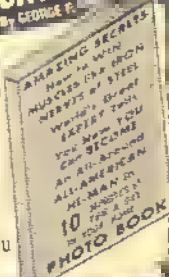 By GEORGE F.
AMAZING SECRETS
HOW to WIN
MUSCLES LIKE IRON
NERVES of STEEL
World's Great
EXPERT Tells
You How YOU
Can BECOME
An All-Around
ALL-AMERICAN
HE-MAN
10
PHOTO BOOK
u